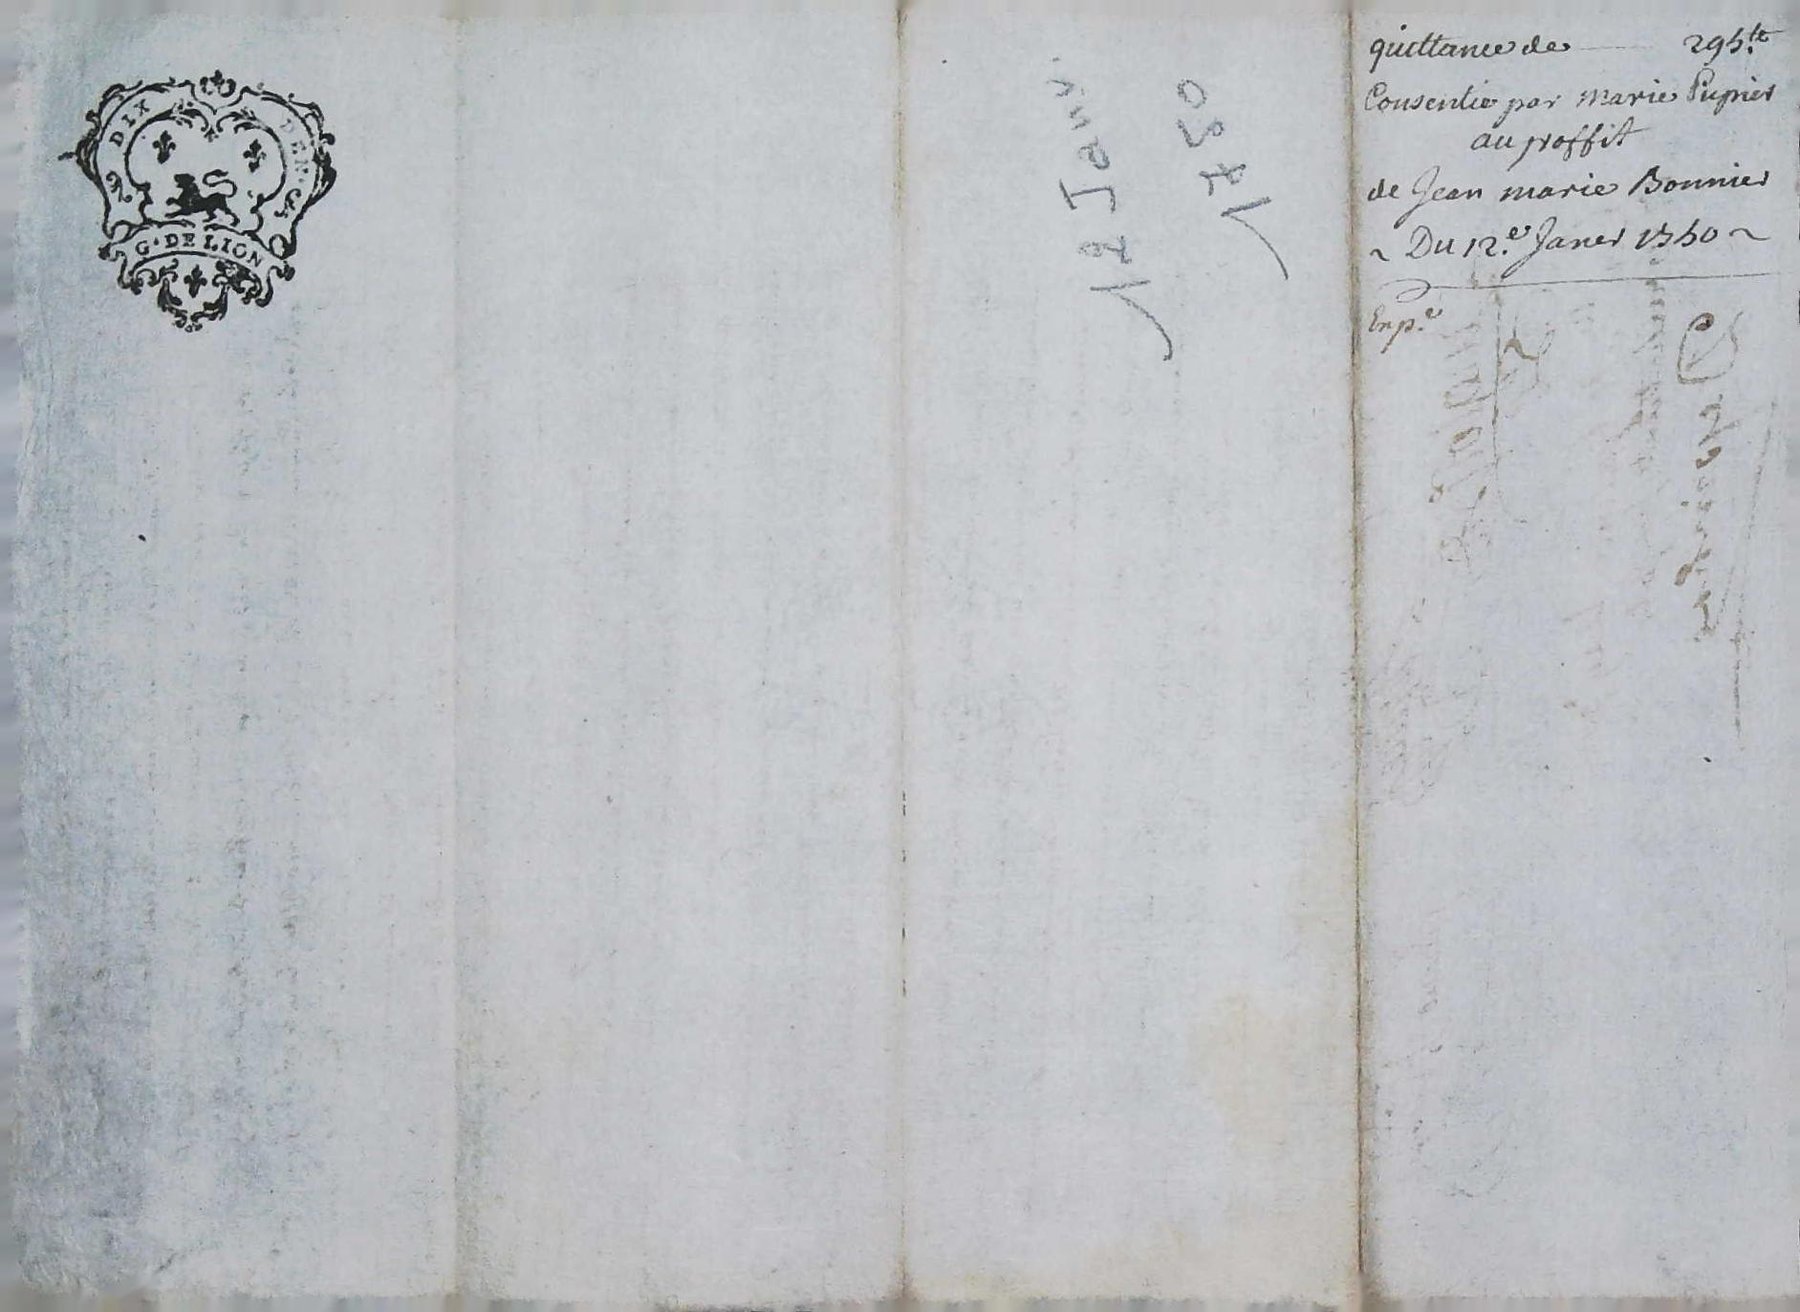 DIX DEN.
G. DE LION
12 Janv.
1750
quittance de 295.lt
Consentie par marie Pupier
au proffit
de Jean marie Bonnier
~ Du 12.e Janer 1750 ~
Exp.e